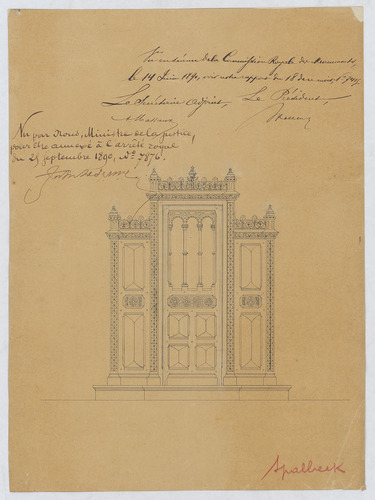 Vu en séance de la Commission Royale des Monuments,
le 14 Juin 1890, voir notre rapport du 18 du mois,
Le Secrétaire Adjoint, Le Président,
A. Massaux
Vu par nous, Ministre de la Justice,
pour être annexé à l'arrêté royal
du 25 septembre 1890, No 7876.
Spalbeek